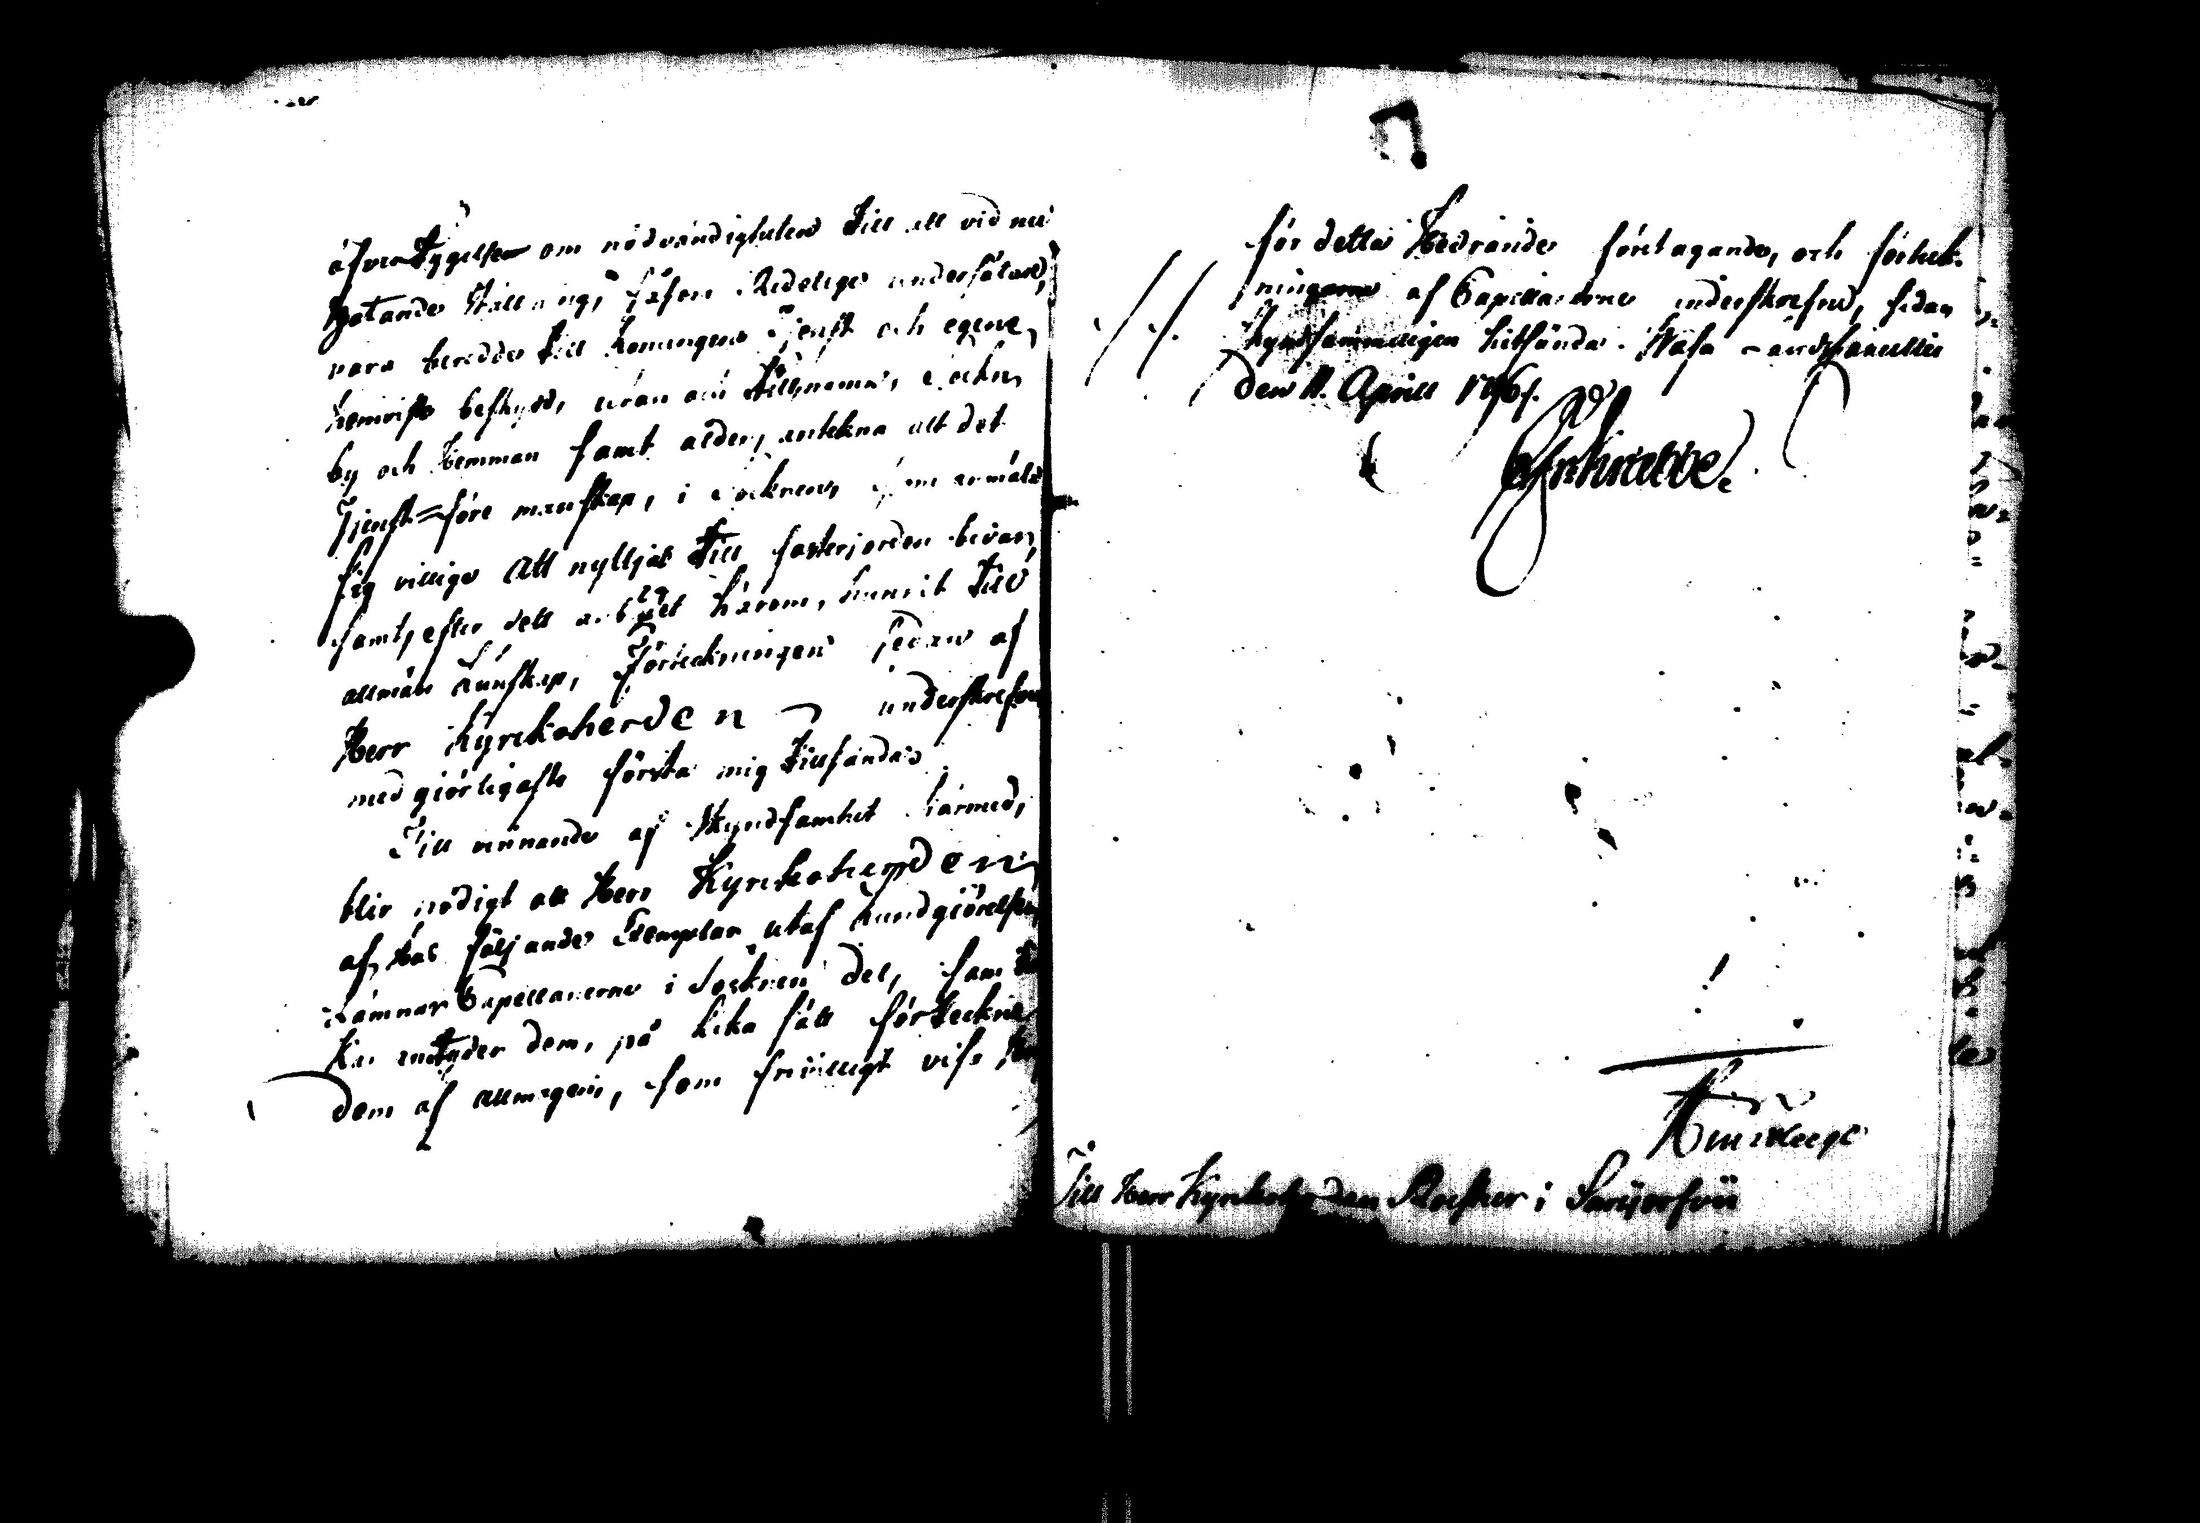 öfvertygelse om nödvändigheten till att vid nu
hotande ställning, såsom Redelige undersåtare,
vara beredde till Konungens Tjenst och egene
hemvists beskydd, äfven om tillnamn, Socken,
by och Hemman samt ålder, antekna alt det
Tjenst=före manskap, i Socknen, som anmält
sig villige att nyttjas till fosterjordens bevara,
samt, efter dett arbetet härom, hunnit till
allmän kunskap, Förteckningen sedan af
Herr Kyrckoherden underskrefven
med giörligaste första mig tillsändas.
Till vinnande af skyndsamhet härmed,
blir nödigt att Herr Kyrckoherden
af, här följande Exemplar utaf Kundgiörelsen
Lämnar Capellanerne i Socknen del, samt
antyder dem, på lika sätt förteckna
dem af allmogen, som frivilligt vise
för detta Hedrande företagande, och förteck-
ningarne af Capellanerne underskrefne, sedan
skyndsammeligen hitsända. Wasa Landskancellie
den 11. Aprill 1789.
Till Herr Kyrckoherden i